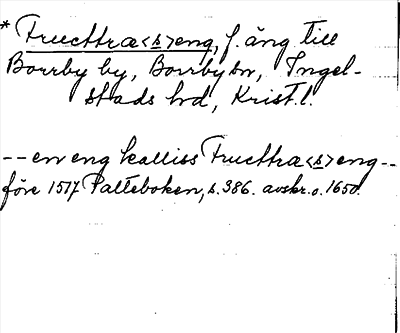 * Fructhra<s>eng, f. äng till
Borrby by, Borrby sn, Ingel-
stads hd, Krist. l.
-- en eng kalliss Fructhra<s>eng --
före 1517 Palteboken, s. 386. avskr. o. 1650.